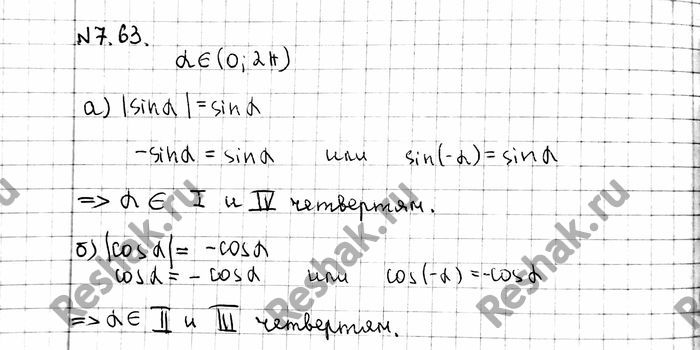 N7.63.
α∈(0; 2π)
а) |sinα|=sinα
-sinα = sinα или sin(-α)=sinα
=> α ∈ I и IV четвертям.
б) |cosα|= -cosα
cosα= - cosα или cos(-α)=-cosα
=> α∈ II и III четвертям.
Reshak.ru
Reshak.ru
Reshak.ru